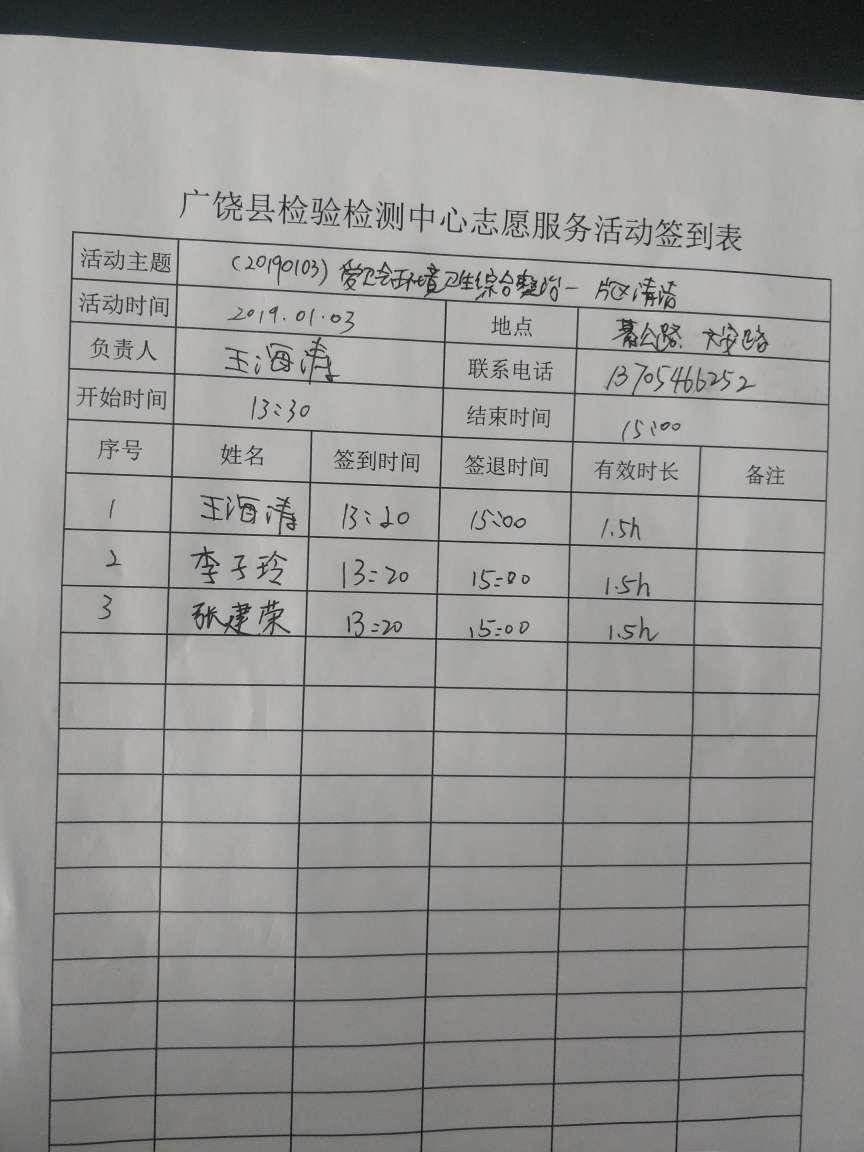 广饶县检验检测中心志愿服务活动签到表
活动主题 (20190103)爱卫会环境卫生综合整治一片区清洁
活动时间 2019.01.03 地点 公路 大安路
负责人 王海涛 联系电话 13705466252
开始时间 13:30 结束时间 15:00
序号 姓名 签到时间 签退时间 有效时长 备注
1 王海涛 13:20 15:00 1.5h
2 李子玲 13:20 15:00 1.5h
3 张建荣 13:20 15:00 1.5h